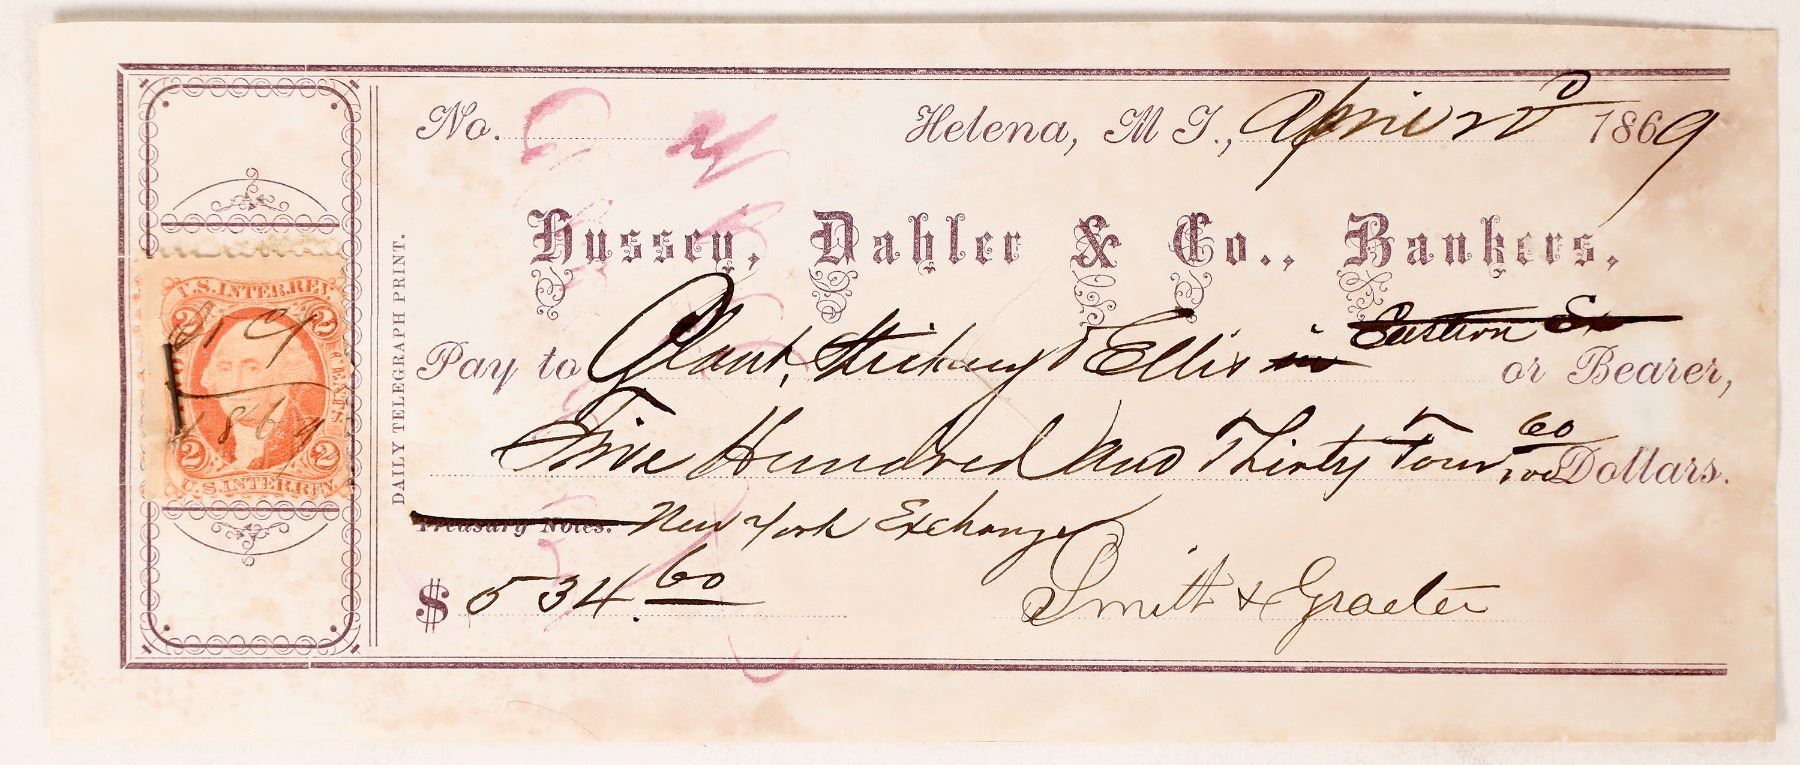 No. Helena, M T., April 22d 1869
Hussey, Dahler & Co., Bankers,
Pay to Plant, Stickney & Ellis in or Bearer,
Five Hundred and Thirty Four 60/100 Dollars.
Treasury Notes. New York Exchange
$ 534.60 Smith & Graeter
DAILY TELEGRAPH PRINT.
U.S. INTER. REV.
2 2
CENTS.
1869
2 2
U.S. INTER. REV.